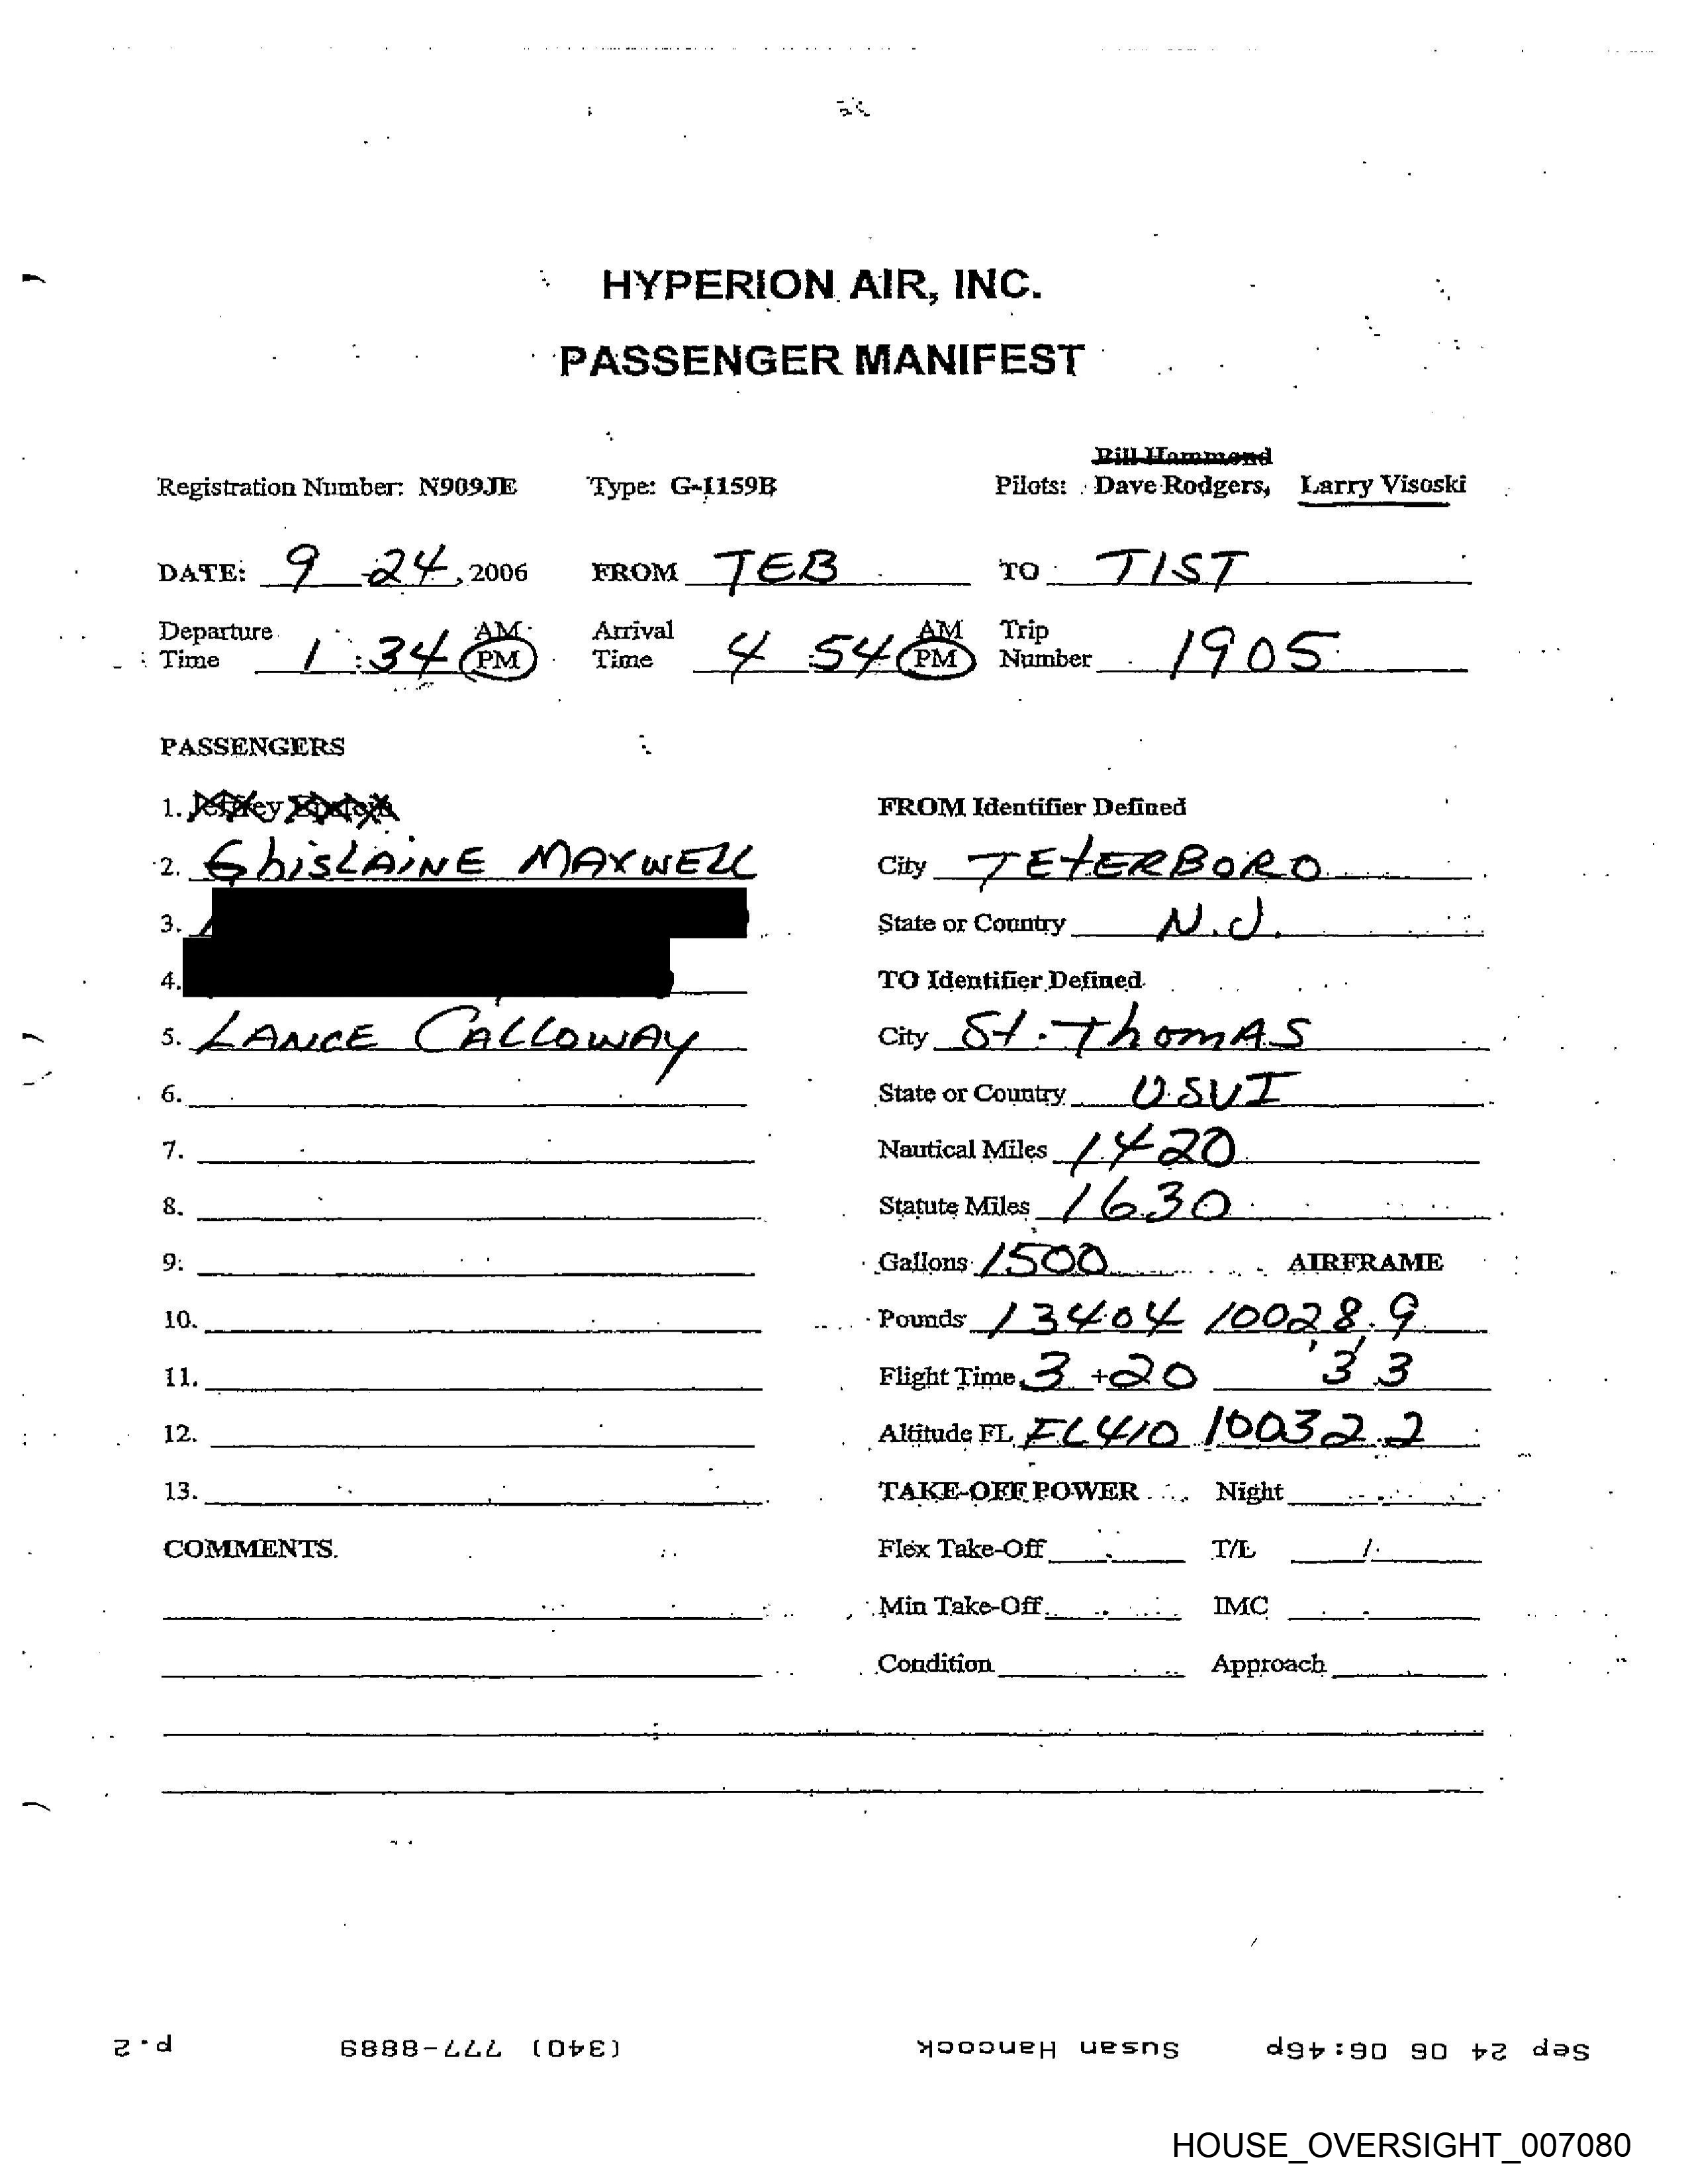 HYPERION AIR, INC.
PASSENGER MANIFEST
Bill Hammond
Registration Number: N909JE Type: G-1159B Pilots: Dave Rodgers, Larry Visoski
DATE: 9 -24, 2006 FROM TEB TO TIST
Departure Time 1:34 AM PM Arrival Time 4:54 AM PM Trip Number 1905
PASSENGERS
1. Jeffrey Epstein FROM Identifier Defined
2. GhisLAiNE MAXWELL City TEtERBORO
3. State or Country N.J.
4. TO Identifier Defined
5. LANCE CALLOWAY City St. ThomAS
6. State or Country USVI
7. Nautical Miles 1420
8. Statute Miles 1630
9. Gallons 1500 AIRFRAME
10. Pounds 13404 10028.9
11. Flight Time 3 +20 3.3
12. Altitude FL FL410 10032.2
13. TAKE-OFF POWER Night
COMMENTS. Flex Take-Off T/L /
Min Take-Off IMC
Condition Approach
Sep 24 06 06:46p Susan Hancock (340) 777-8889 p.2
HOUSE_OVERSIGHT_007080